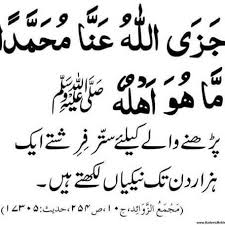 جَزَى اللهُ عَنَّا مُحَمَّدًا
مَّا هُوَ اَهْلُهٗ ﷺ
پڑھنے والے کیلئے ستر فرشتے ایک
ہزار دن تک نیکیاں لکھتے ہیں۔
(مَجْمَعُ الزَّوائِد، ج۱۰، ص۲۵۴، حدیث:۱۷۳۰۵)